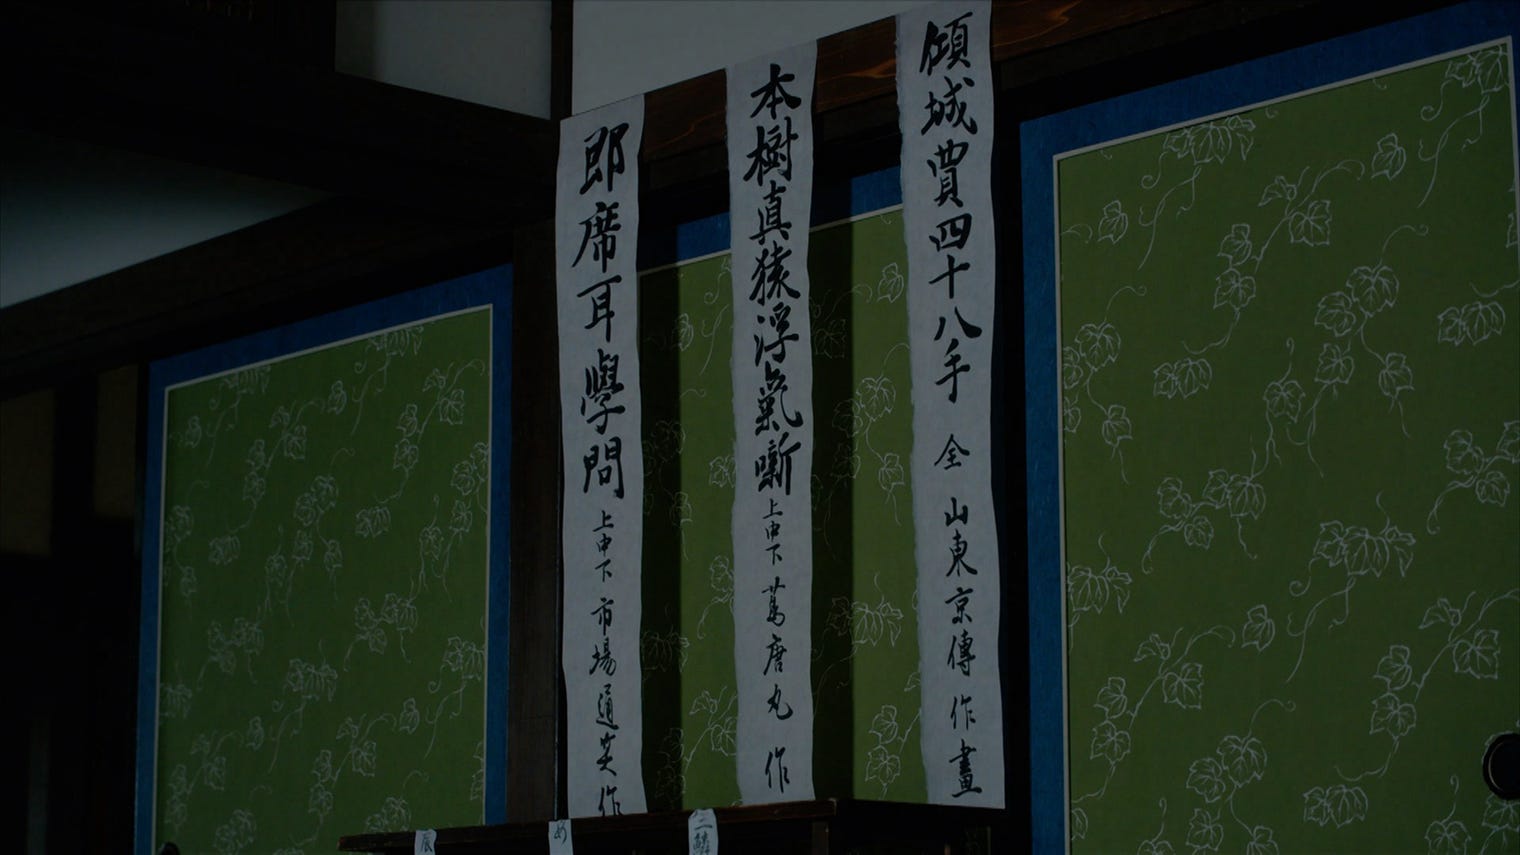 傾城買四十八手 全 山東京傳 作畫
本樹真猿浮氣噺 上中下 蔦唐丸 作
即席耳學問 上中下 市場通笑 作
三鱗
め
辰